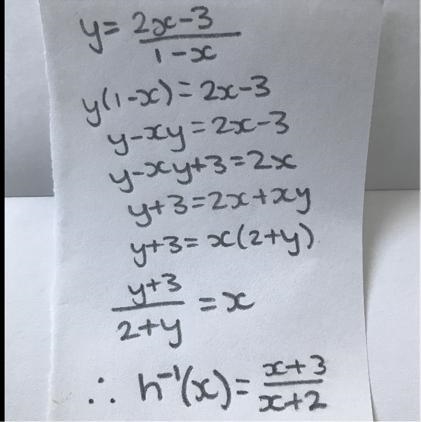 y = 2x-3 / 1-x
y(1-x) = 2x-3
y-xy = 2x-3
y-xy+3 = 2x
y+3 = 2x+xy
y+3 = x(2+y)
y+3 / 2+y = x
∴ h⁻¹(x) = x+3 / x+2